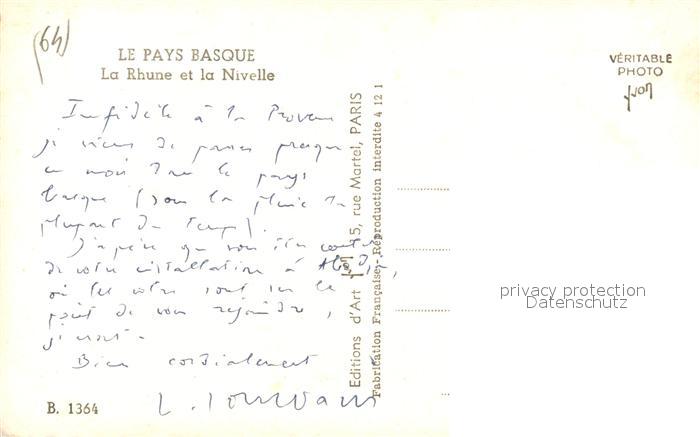 (64)
LE PAYS BASQUE
La Rhune et la Nivelle
VÉRITABLE
PHOTO
yvon
Infidèle à la Provence
je viens de passer presque
un mois dans le pays
basque (sous la pluie la
plupart du temps).
J'espère que vous êtes content
de votre installation à
où les votres sont sur le
point de vous rejoindre,
Bien cordialement
Editions d'Art yvon 15, rue Martel, PARIS
Fabrication Française - Réproduction interdite 4 12 1
privacy protection
Datenschutz
B. 1364